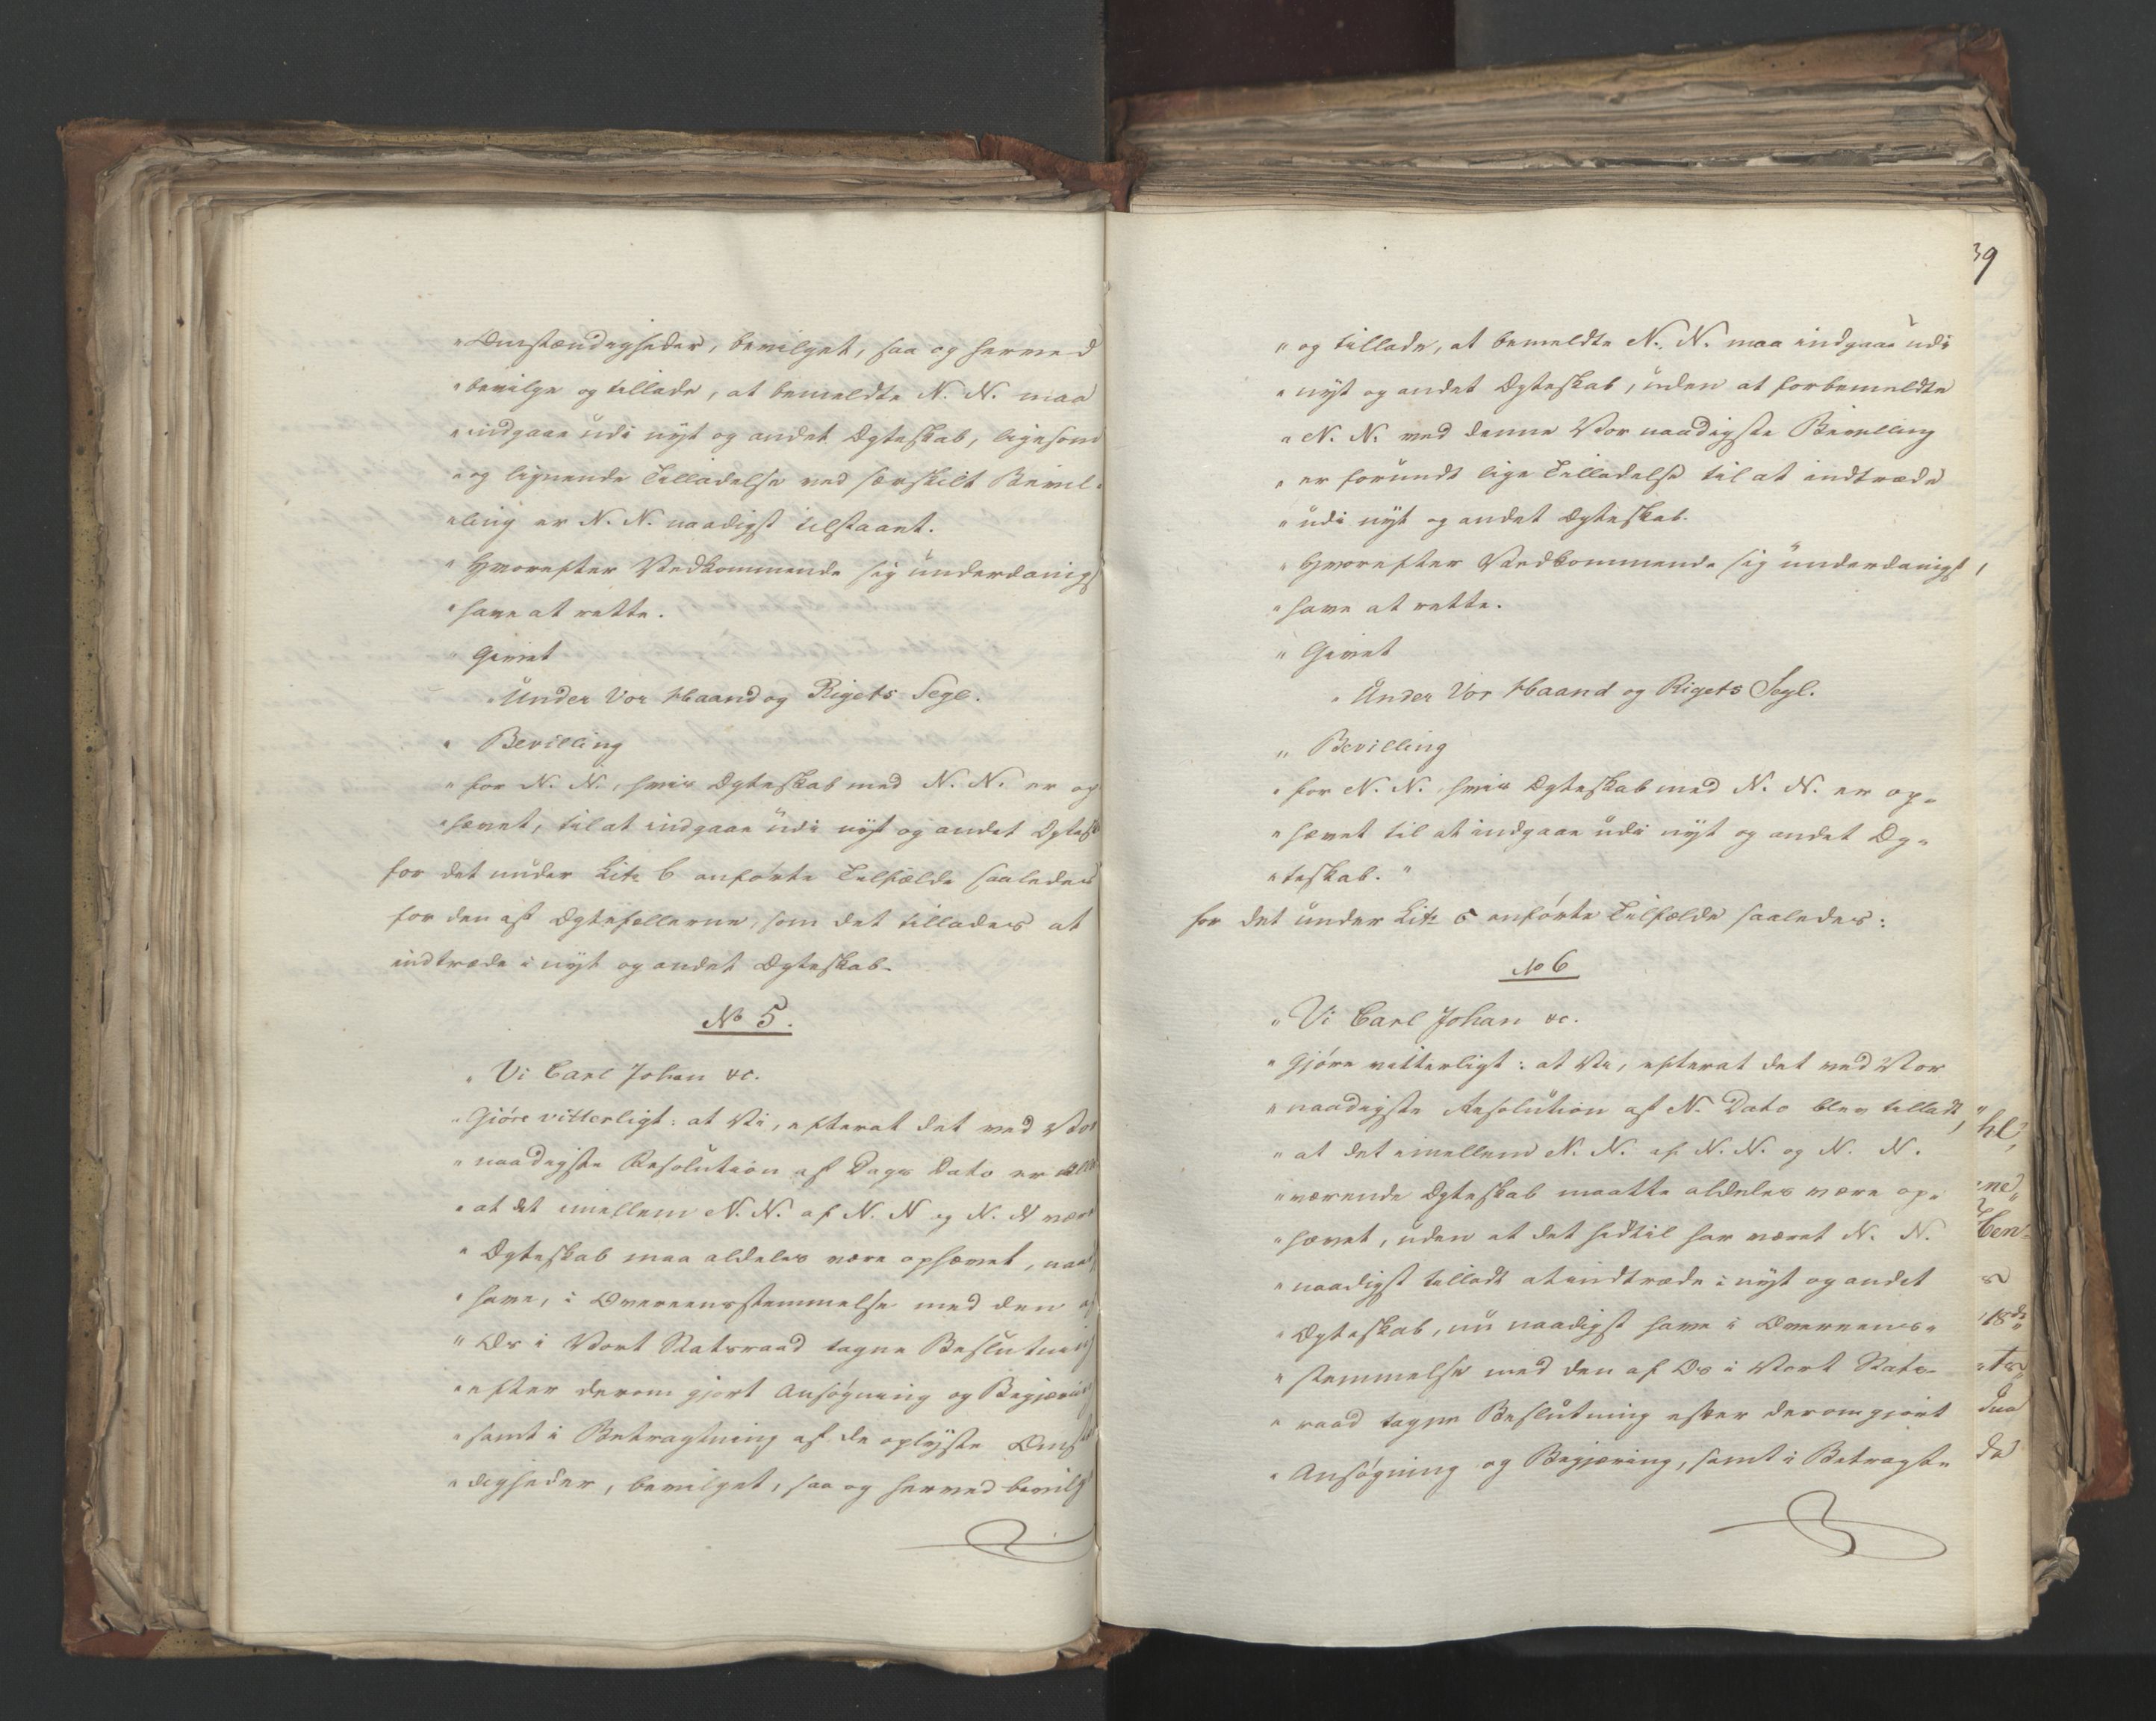 "Omstændigheder, bevilget, saa og herved
"bevilge og tillade, at bemeldte N. N. maa
"indgaae udi nyt og andet Ægteskab, ligesom
"og lignende Tilladelse ved særskilt Bevil-
"ling er N. N. naadigst tilstaaet.
"Hvorefter Vedkommende sig underdanigst
"have at rette.
"Givet
"Under Vor Haand og Rigets Segl.
"Bevilling
"for N. N., hvis Ægteskab med N. N. er op
"hævet, til at indgaae udi nyt og andet Ægtesk
for det under Litr b anførte Tilfælde saaledes
for den af Ægtefellerne, som det tillades at
indtræde i nyt og andet Ægteskab.
No 5.
"Vi Carl Johan &c.
"Gjøre vitterligt: at Vi, efterat det ved Vor
"naadigste Resolution af Dags Dato er
"at det imellem N. N. af N. N og N. N være
"Ægteskab maa aldeles være ophævet, naad
"have, i Overeensstemmelse med den af
"Os i Vort Statsraad tagne Beslutning
"efter derom gjort Ansøgning og Begjæring
"samt i Betragtning af de oplyste Omst
"digheder, bevilget, saa og herved bevilg
39
"og tillade, at bemeldte N. N. maa indgaae udi
"nyt og andet Ægteskab, uden at forbemeldte
"N. N. ved denne Vor naadigste Bevilling
"er forundt lige Tilladelse til at indtræde
"udi nyt og andet Ægteskab.
"Hvorefter Vedkommende sig underdanigst,
"have at rette.
"Givet
"Under Vor Haand og Rigets Segl.
"Bevilling
"for N. N. hvis Ægteskab med N. N. er op-
"hævet til at indgaae udi nyt og andet Æg-
"teskab."
for det under Litr c anførte Tilfælde saaledes:
No 6
"Vi Carl Johan &c.
"Gjøre vitterligt: at Vi, efterat det ved Vor
"naadigste Resolution af N. Dato blev tilladt,
"at det imellem N. N. af N. N. og N. N.
"værende Ægteskab maatte aldeles være op-
"hævet, uden at det hidtil har været N. N.
"naadigst tilladt at indtræde i nyt og andet
"Ægteskab, nu naadigst have i Overeens-
"stemmelse med den af Os i Vort Stats-
"raad tagne Beslutning efter derom gjort
"Ansøgning og Begjæring, samt i Betragt-